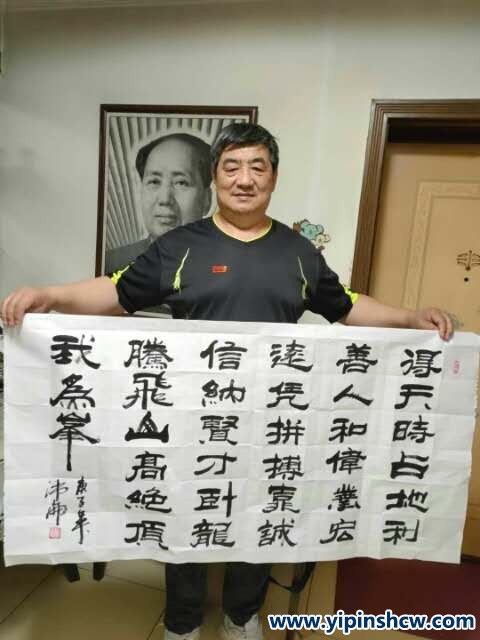 得天時占地利
善人和偉業宏
遠凭拼搏靠誠
信納賢才卧龍
騰飛山高絶頂
我為峯
庚子年
www.yipinshcw.com